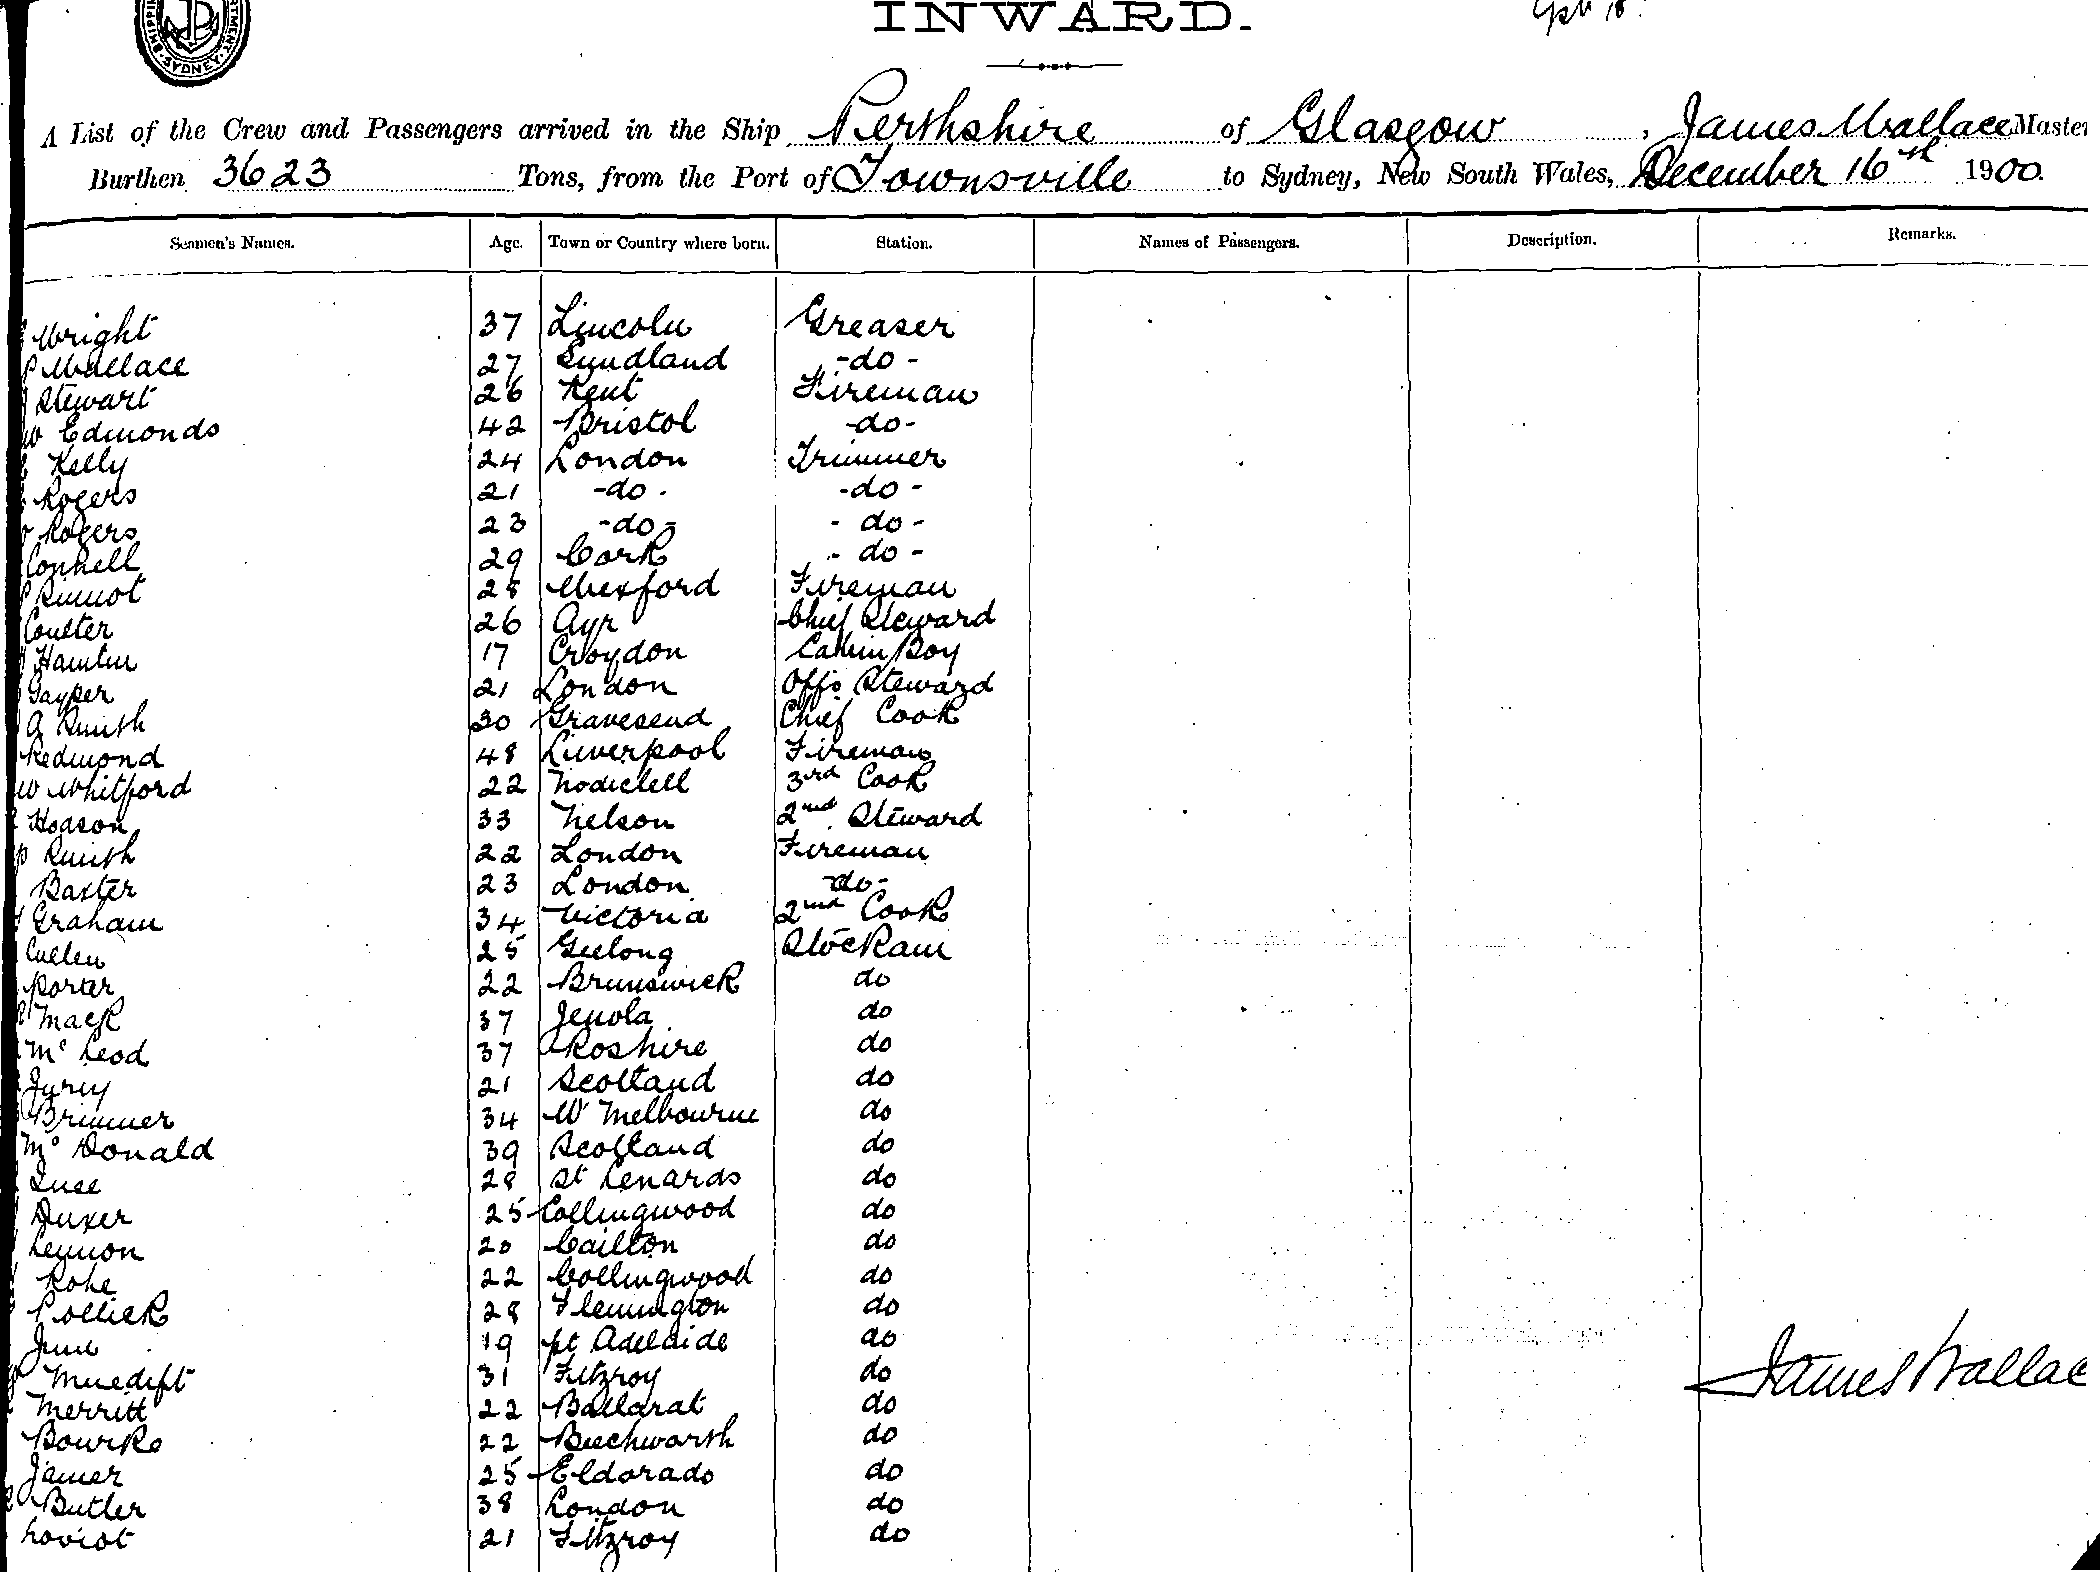 SHIPPING
DEPARTMENT
SYDNEY
INWARD.
A List of the Crew and Passengers arrived in the Ship Perthshire of Glasgow, James Wallace Master
Burthen 3623 Tons, from the Port of Townsville to Sydney, New South Wales, December 16th 1900.
Seamen's Names. Age. Town or Country where born. Station. Names of Passengers. Description. Remarks.
Wright 37 Lincoln Greaser
Wallace 27 Sundland -do-
Stewart 26 Kent Fireman
W Edmonds 42 Bristol -do-
Kelly 24 London Trimmer
Rogers 21 -do- -do-
Rogers 23 -do- -do-
Connell 29 Cork -do-
Sinnot 28 Wexford Fireman
Coulter 26 Ayr Chief Steward
Hamlin 17 Croydon Cabin Boy
Gayper 21 London Offs Steward
A Smith 30 Gravesend Chief Cook
Redmond 48 Liverpool Fireman
W Whitford 22 3rd Cook
Hodson 33 Nelson 2nd Steward
Smith 22 London Fireman
Baxter 23 London -do-
Graham 34 Victoria 2nd Cook
Cullen 25 Geelong Stockam
Porter 22 Brunswick do
Mack 37 Jenola do
Mc Leod 37 Roshire do
Jurey 21 Scotland do
Brimmer 34 W Melbourne do
Mc Donald 39 Scotland do
28 St Lenards do
Duxer 25 Collingwood do
Lennon 20 Cailton do
Rohe 22 Collingwood do
Pollick 28 Flemington do
June 19 pt Adelaide do
31 Fitzroy do
Merritt 22 Ballarat do
Bourke 22 Beechworth do
James Wallac
Jamer 25 Eldorado do
Butler 38 London do
Loviot 21 Fitzroy do